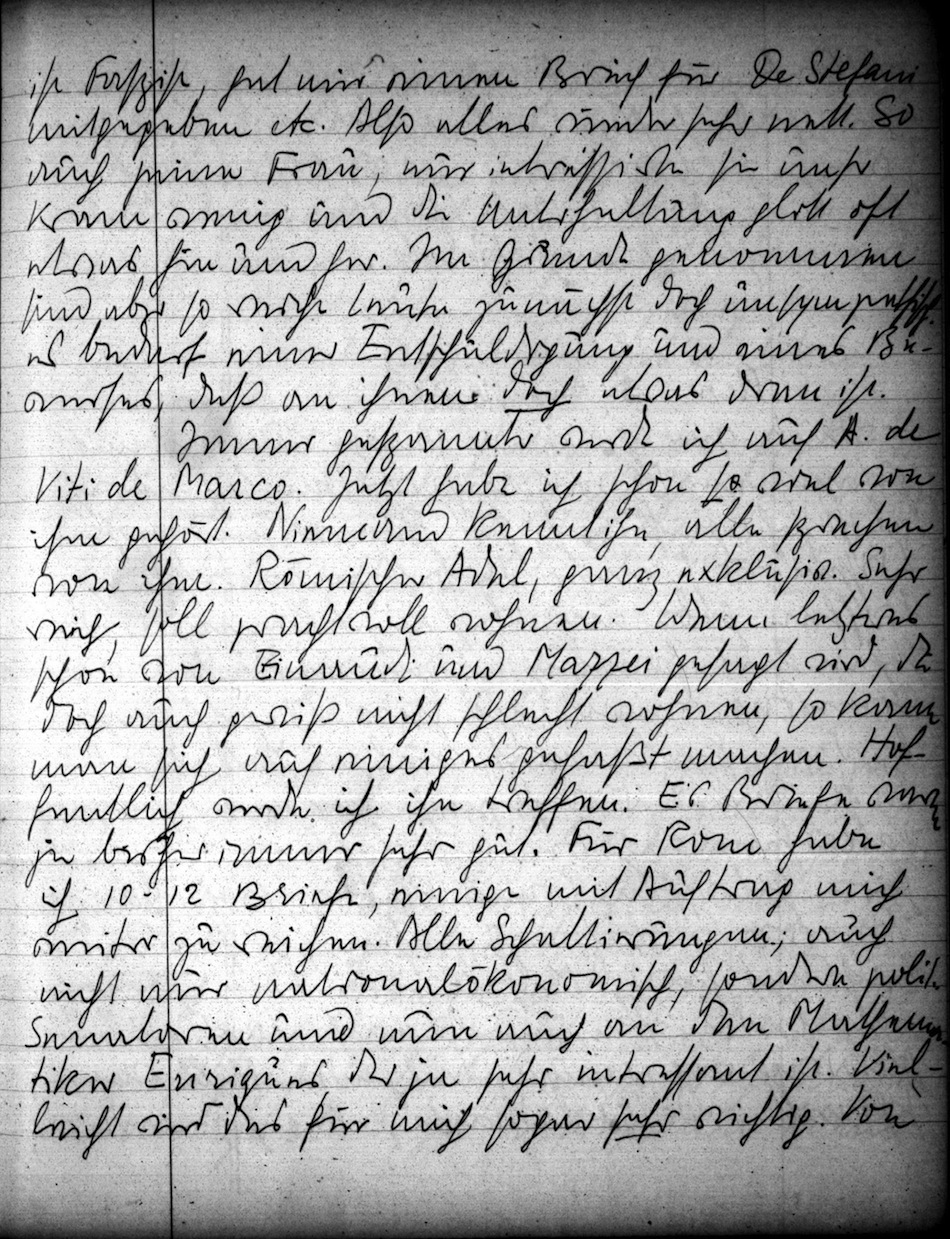 ist Faszist, hat mir einen Brief für De Stefani
mitgegeben etc. Also alles wieder sehr nett. So
auch seine Frau, nur intressierte sie unser
Kram wenig und die Unterhaltung glitt oft
etwas hin und her. Im Grunde genommen
sind aber so reiche Leute zunächst doch unsympathisch
es bedarf einer Entschuldigung und eines Be-
weises, daß an ihnen doch etwas dran ist.
Immer gespannter werde ich auf A. de
Viti de Marco. Jetzt habe ich schon so viel von
ihm gehört. Niemand kennt ihn, alle sprechen
von ihm. Römischer Adel, ganz exklusiv. Sehr
reich, soll prachtvoll wohnen. Wenn letzteres
schon von Einaudi und Mazzei gesagt wird, die
doch auch gewiß nicht schlecht wohnen, so kann
man sich auf einiges gefaßt machen. Hof-
fentlich werde ich ihn treffen. E's Briefe waren
ja bisher immer sehr gut. Für Rom habe
ich 10-12 Briefe, einige mit Auftrag mich
weiter zu reichen. Alle Schattierungen; auch
nicht nur nationalökonomisch, sondern polit.
Senatoren und nun auch an den Mathema-
tiker Enriques der ja sehr intressant ist. Viel-
leicht wird das für mich sogar sehr wichtig. Von